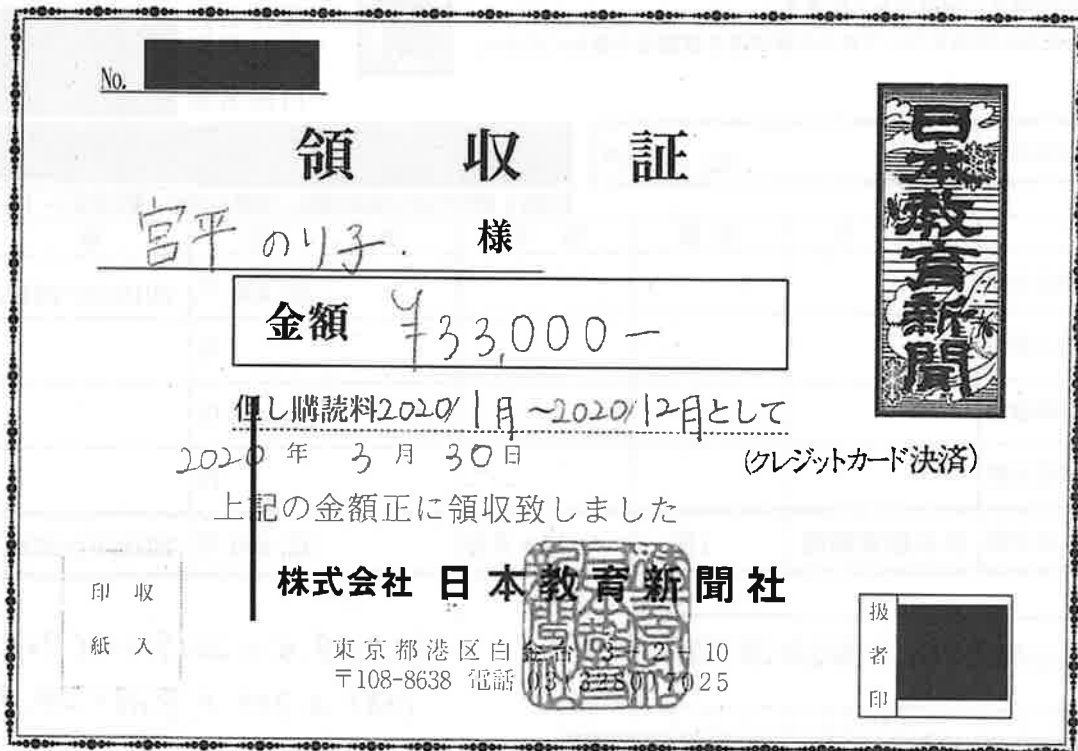 No.
領収証
日本教育新聞
宮平 のり子. 様
金額 ¥33,000-
但し購読料2020/1月~2020/12月として
2020年 3月 30日
(クレジットカード決済)
上記の金額正に領収致しました
株式会社 日本教育新聞社
東京都港区白金台3-2-10
〒108-8638 電話 03 3280 7025
収入印紙
扱者印